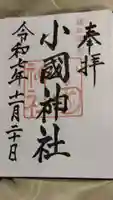 奉拝
小國神社
令和七年十一月二十日